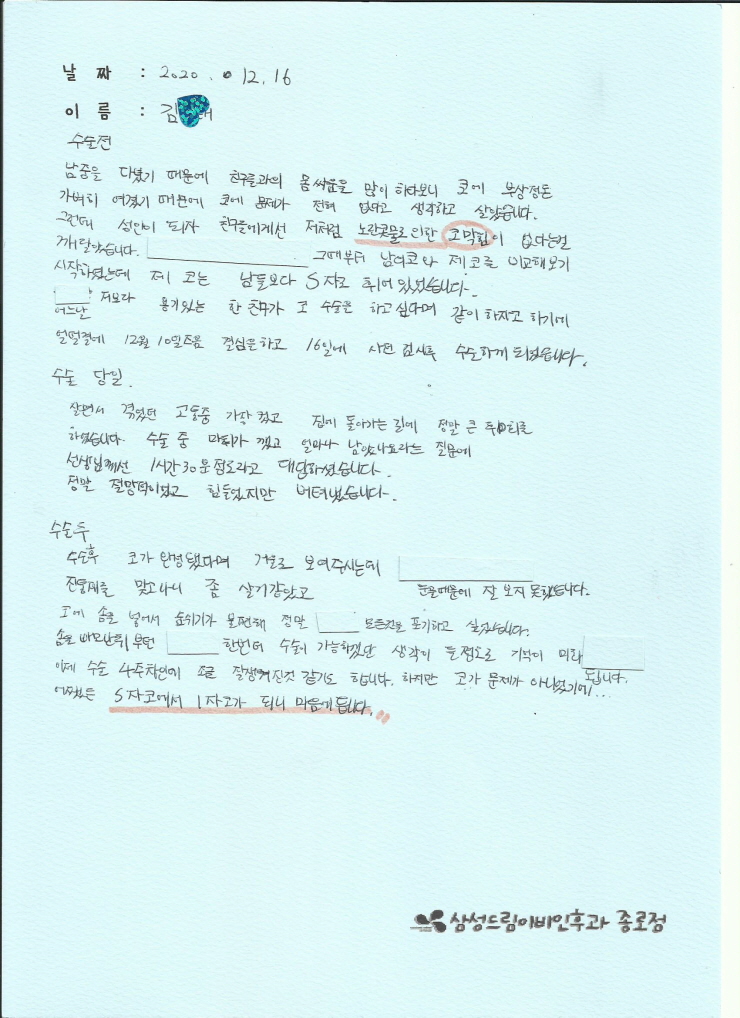 날 짜 : 2020. 12. 16
이 름 : 김
수술전
남중을 다녔기 때문에 친구들과의 몸싸움을 많이 하다보니 코에 부상정돈
가벼히 여겼기 때문에 코에 문제가 전혀 없다고 생각하고 살았습니다.
그런데 성인이 되자 친구들에게선 저처럼 노란콧물로 인한 코막힘이 없다는걸
깨달았습니다. 그때부터 남의코와 제 코를 비교해보기
시작하였는데 제 코는 남들보다 S자로 휘어 있었습니다.
어느날 저보다 용기있는 한 친구가 코 수술을 하고 싶다며 같이 하자고 하기에
얼떨결에 12월 10일쯤 결심을하고 16일에 사전 검사후 수술하게 되었습니다.
수술 당일.
살면서 겪었던 고통중 가장 컸고 집에 돌아가는 길에 정말 큰 후회를
하였습니다 수술 중 마취가 깼고 얼마나 남았나요라는 질문에
선생님께선 1시간 30분 정도라고 대답하셨습니다.
정말 절망적이었고 힘들었지만 버텨냈습니다.
수술후
수술후 코가 완성됐다며 거울로 보여주시는데
진통제를 맞고나니 좀 살거같았고 눈물때문에 잘 보지 못했습니다.
코에 솜을 넣어서 숨쉬기가 불편해 정말 모든것을 포기하고 싶었습니다.
솜을 빼고난뒤 부턴 한번더 수술이 가능하겠단 생각이 들정도로 기억이 미화
됩니다.
이제 수술 4주차인데 조금 잘생겨진것 같기도 합니다. 하지만 코가 문제가 아니었기에...
어쨌든 S자코에서 1자코가 되니 마음에 듭니다.
삼성드림이비인후과 종로점